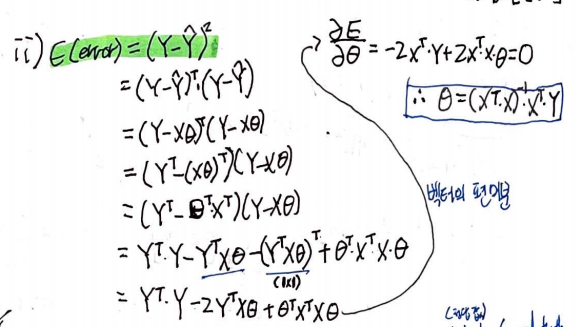 ii) E(error) = (Y-Ŷ)²
= (Y-Ŷ)ᵀ·(Y-Ŷ)
= (Y-Xθ)ᵀ(Y-Xθ)
= (Yᵀ-(Xθ)ᵀ)(Y-Xθ)
= (Yᵀ-θᵀXᵀ)(Y-Xθ)
= Yᵀ·Y-YᵀXθ-(YᵀXθ)ᵀ+θᵀ·XᵀX·θ
(1x1)
= Yᵀ·Y-2YᵀXθ+θᵀXᵀXθ
∂E/∂θ = -2Xᵀ·Y+2Xᵀ·X·θ=0
∴ θ=(Xᵀ·X)⁻¹·Xᵀ·Y
벡터의 편미분